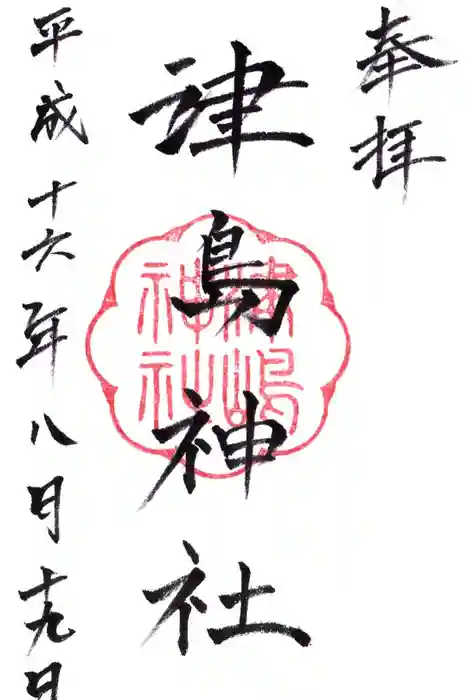 奉拝
津島神社
津嶋神社
平成十六年八月十九日